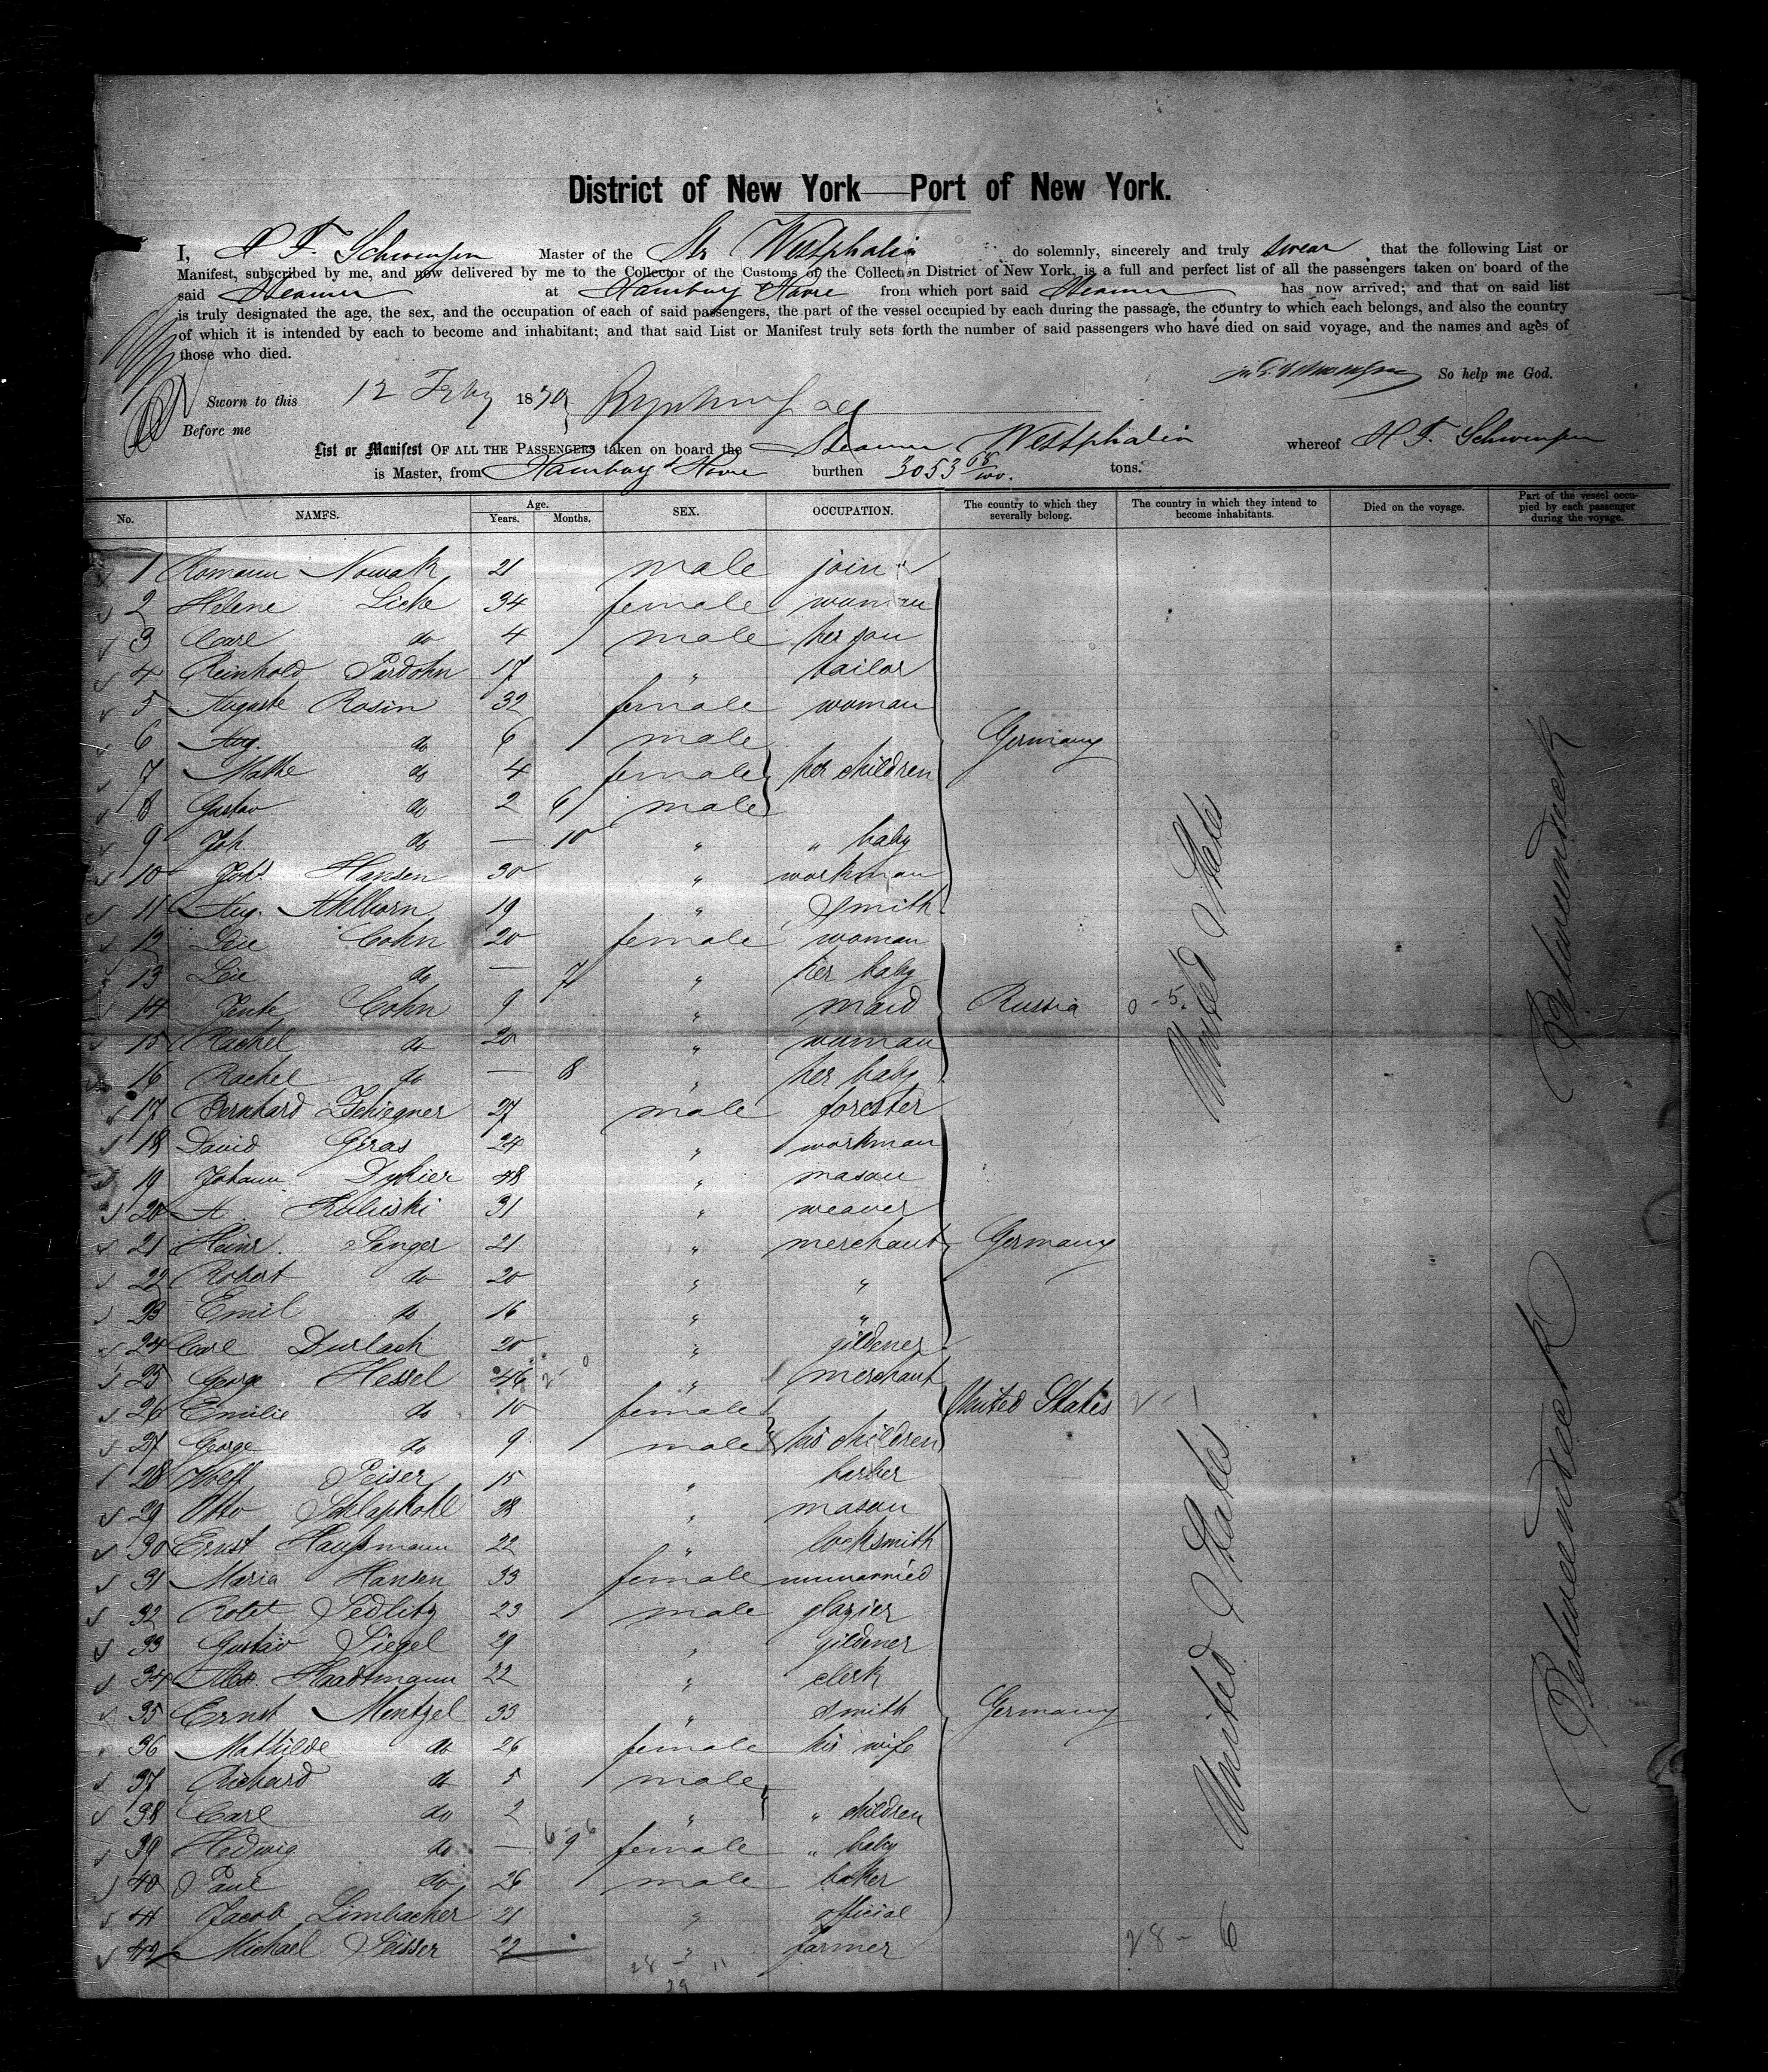 District of New York—Port of New York.
I, H F. Schwensen Master of the Str Westphalia do solemnly, sincerely and truly swear that the following List or
Manifest, subscribed by me, and now delivered by me to the Collector of the Customs of the Collection District of New York, is a full and perfect list of all the passengers taken on board of the
said Steamer at Hamburg & Havre from which port said Steamer has now arrived; and that on said list
is truly designated the age, the sex, and the occupation of each of said passengers, the part of the vessel occupied by each during the passage, the country to which each belongs, and also the country
of which it is intended by each to become and inhabitant; and that said List or Manifest truly sets forth the number of said passengers who have died on said voyage, and the names and ages of
those who died.
So help me God.
Sworn to this 12 Feby 1879
Before me
List or Manifest OF ALL THE PASSENGERS taken on board the Steamer Westphalia whereof H F. Schwensen
is Master, from Hamburg & Havre burthen 3053 68/100. tons.
No. NAMES. Age. Years. Months. SEX. OCCUPATION. The country to which they severally belong. The country in which they intend to become inhabitants. Died on the voyage. Part of the vessel occupied by each passenger during the voyage.
1 Romann Nowak 21 male join
2 Helene Licke 34 female woman
3 Carl do 4 male her son
4 Reinhold Pardohn 17 " tailor
5 Auguste Rosin 32 female woman
6 Aug. do 6 male Germany
7 Mathe do 4 female her children
8 Gustav do 2 6 male
9 Joh. do — 10 " " baby
10 Johs Hansen 30 " workman
11 Aug. Ahlborn 19 " Smith
12 Leie Cohn 20 female woman
13 Leie do — 7 " her baby
14 Jente Cohn 9 " maid Russia 0-5.
15 Rachel do 20 " woman
16 Rachel do — 8 " her baby
17 Bernhard Zschiegner 27 male forester
18 David Geras 24 " workman
19 Johann Dykier 48 " mason
20 A. Kulinski 31 " weaver
21 Heinr. Senger 21 " merchant Germany
22 Robert do 20 " "
23 Emil do 16 " "
24 Carl Durlach 20 " gildener
25 George Hessel 46 " merchant
26 Emilie do 10 female United States
27 George do 9 male his children
28 Wolff Peiser 15 " barber
29 Otto Schlapkohl 28 " mason
30 Ernst Haußmann 22 " locksmith
31 Maria Hansen 33 female unmarried
32 Robt Sedlitz 23 male glazier
33 Gustav Siegel 29 " gildener
34 Alex. Haedtmann 22 " clerk
35 Ernst Mentzel 33 " smith Germany
36 Mathilde do 26 female his wife
37 Richard do 5 male
38 Carl do 2 " " children
39 Hedwig do — 9 female " baby
40 Paul do 26 male baker
41 Jacob Limbacher 21 " official
42 Michael Sisser 22 " farmer
28 - 6
28 - 11
29
United States
United States
Betweendeck
Betweendeck